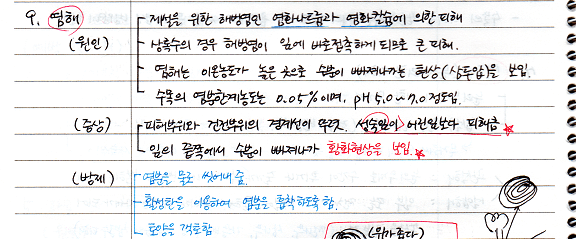 9. 염해 - 제설을 위한 해빙염인 염화나트륨과 염화칼슘에 의한 피해
(원인) - 상록수의 경우 해빙염이 잎에 바로접촉하게 되므로 큰 피해.
- 염해는 이온농도가 높은 곳으로 수분이 빠져나가는 현상(삼투압)을 보임.
- 수목의 염분한계농도는 0.05%이며, pH 5.0~7.0 정도임.
(증상) - 피해부위와 건전부위의 경계선이 뚜렷. 성숙잎이> 어린잎보다 피해큼 ★
- 잎의 끝쪽에서 수분이 빠져나가 황화현상을 보임. ★
(방제) - 염분을 물로 씻어내 줌.
- 활성탄을 이용하여 염분을 흡착하도록 함.
- 토양을 객토함
(위가좁다)